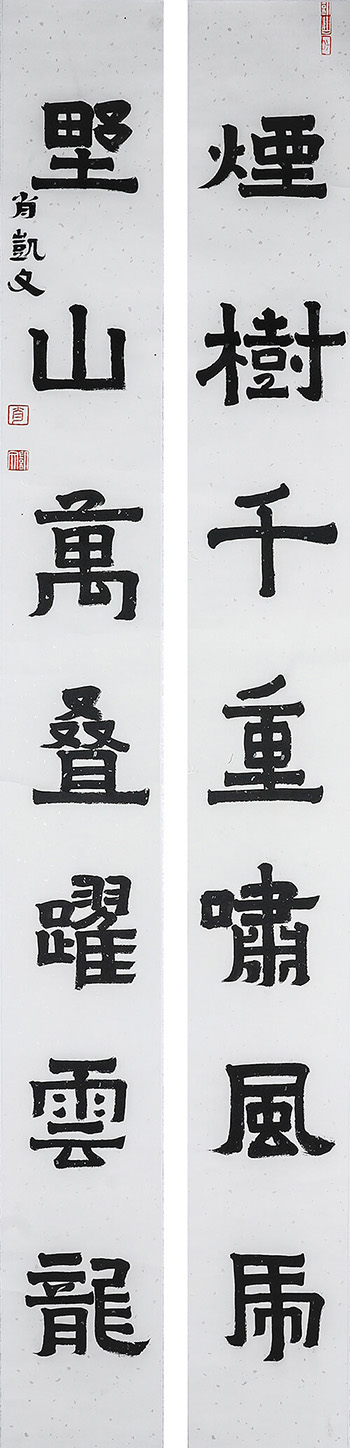 煙樹千重嘯風虎
野山萬叠躍雲龍
肖凱文